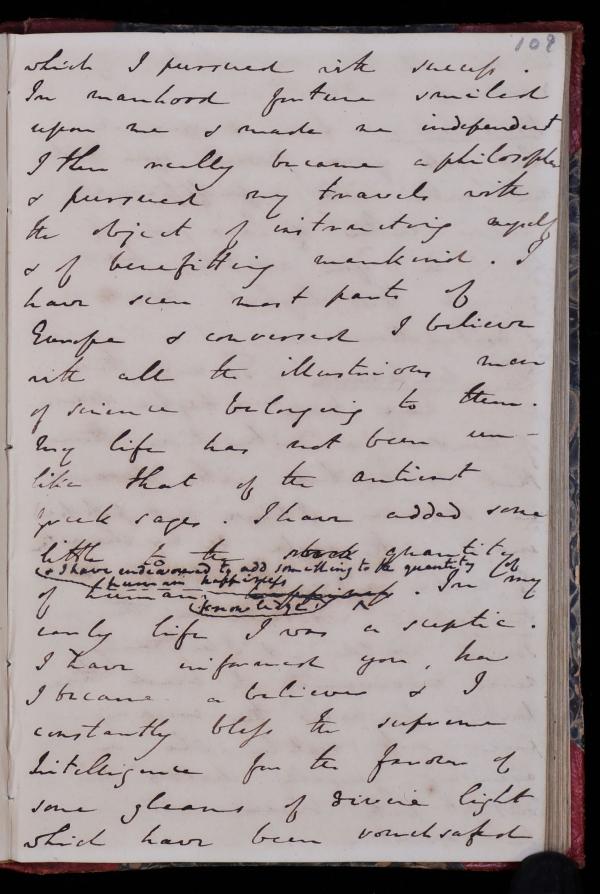 109
which I pursued with success.
In manhood fortune smiled
upon me & made me independent
I then really became a philosopher
& pursued my travels with
the object of instructing myself
& of benefitting mankind. I
have seen most parts of
Europe & conversed I believe
with all the illustrious men
of science belonging to them.
My life has not been un-
like that of the antient
greek sages. I have added some
little to the stock quantity of
& I have endeavoured to add something to the quantity of
human happiness
of human happiness. In my
knowledge,
early life I was a sceptic.
I have informed you, how
I became a believer & I
constantly bless the supreme
Intelligence for the favour of
some gleams of divine light
which have been vouchsafed